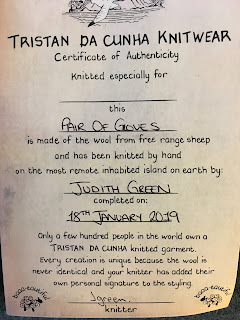 TRISTAN DA CUNHA KNITWEAR
Certificate of Authenticity
Knitted especially for
this
PAIR OF GLOVES
is made of the wool from free range sheep
and has been knitted by hand
on the most remote inhabited island on earth by:
JUDITH GREEN
completed on:
18TH JANUARY 2019
Only a few hundred people in the world own a
TRISTAN DA CUNHA knitted garment.
Every creation is unique because the wool is
never identical and your knitter has added their
own personal signature to the styling.
baaa-eautiful
Jgreen.
baaa-eautiful
knitter